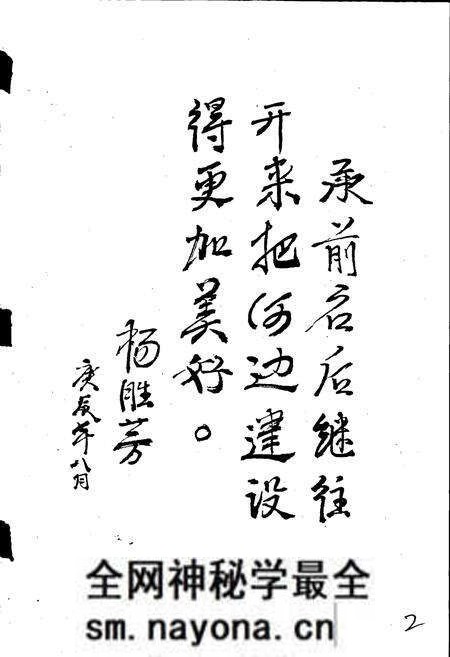 承前启后继往
开来把河边建设
得更加美好。
杨胜芳
庚辰年八月
全网神秘学最全
sm.nayona.cn
2